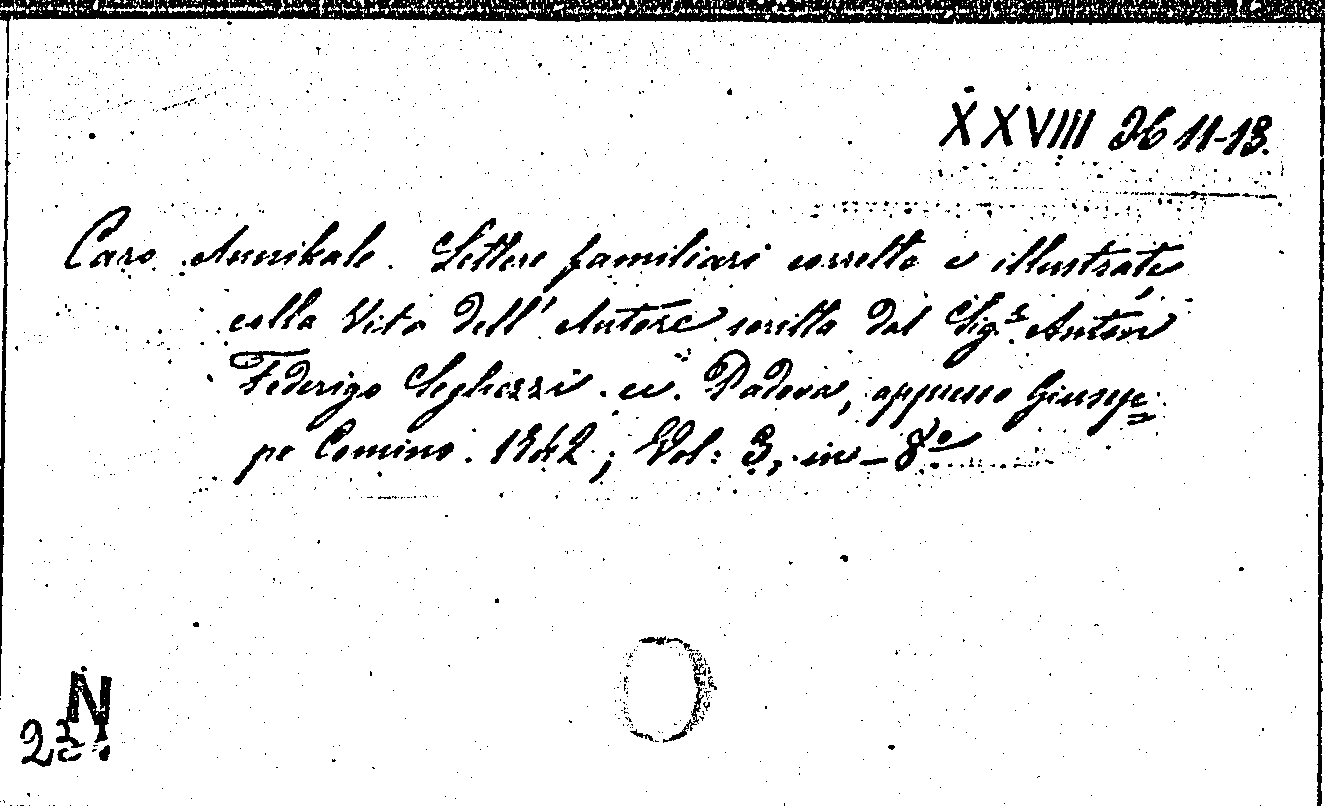 XXVIII 26 11-13.
Caro Annibale. Lettere familiari corrette e illustrate
colla Vita dell' Autore scritta dal Sig.r Anton
Federigo Seghezzi. Padova, appresso Giusep=
pe Comino. 1742; Vol: 3, in-8º
N